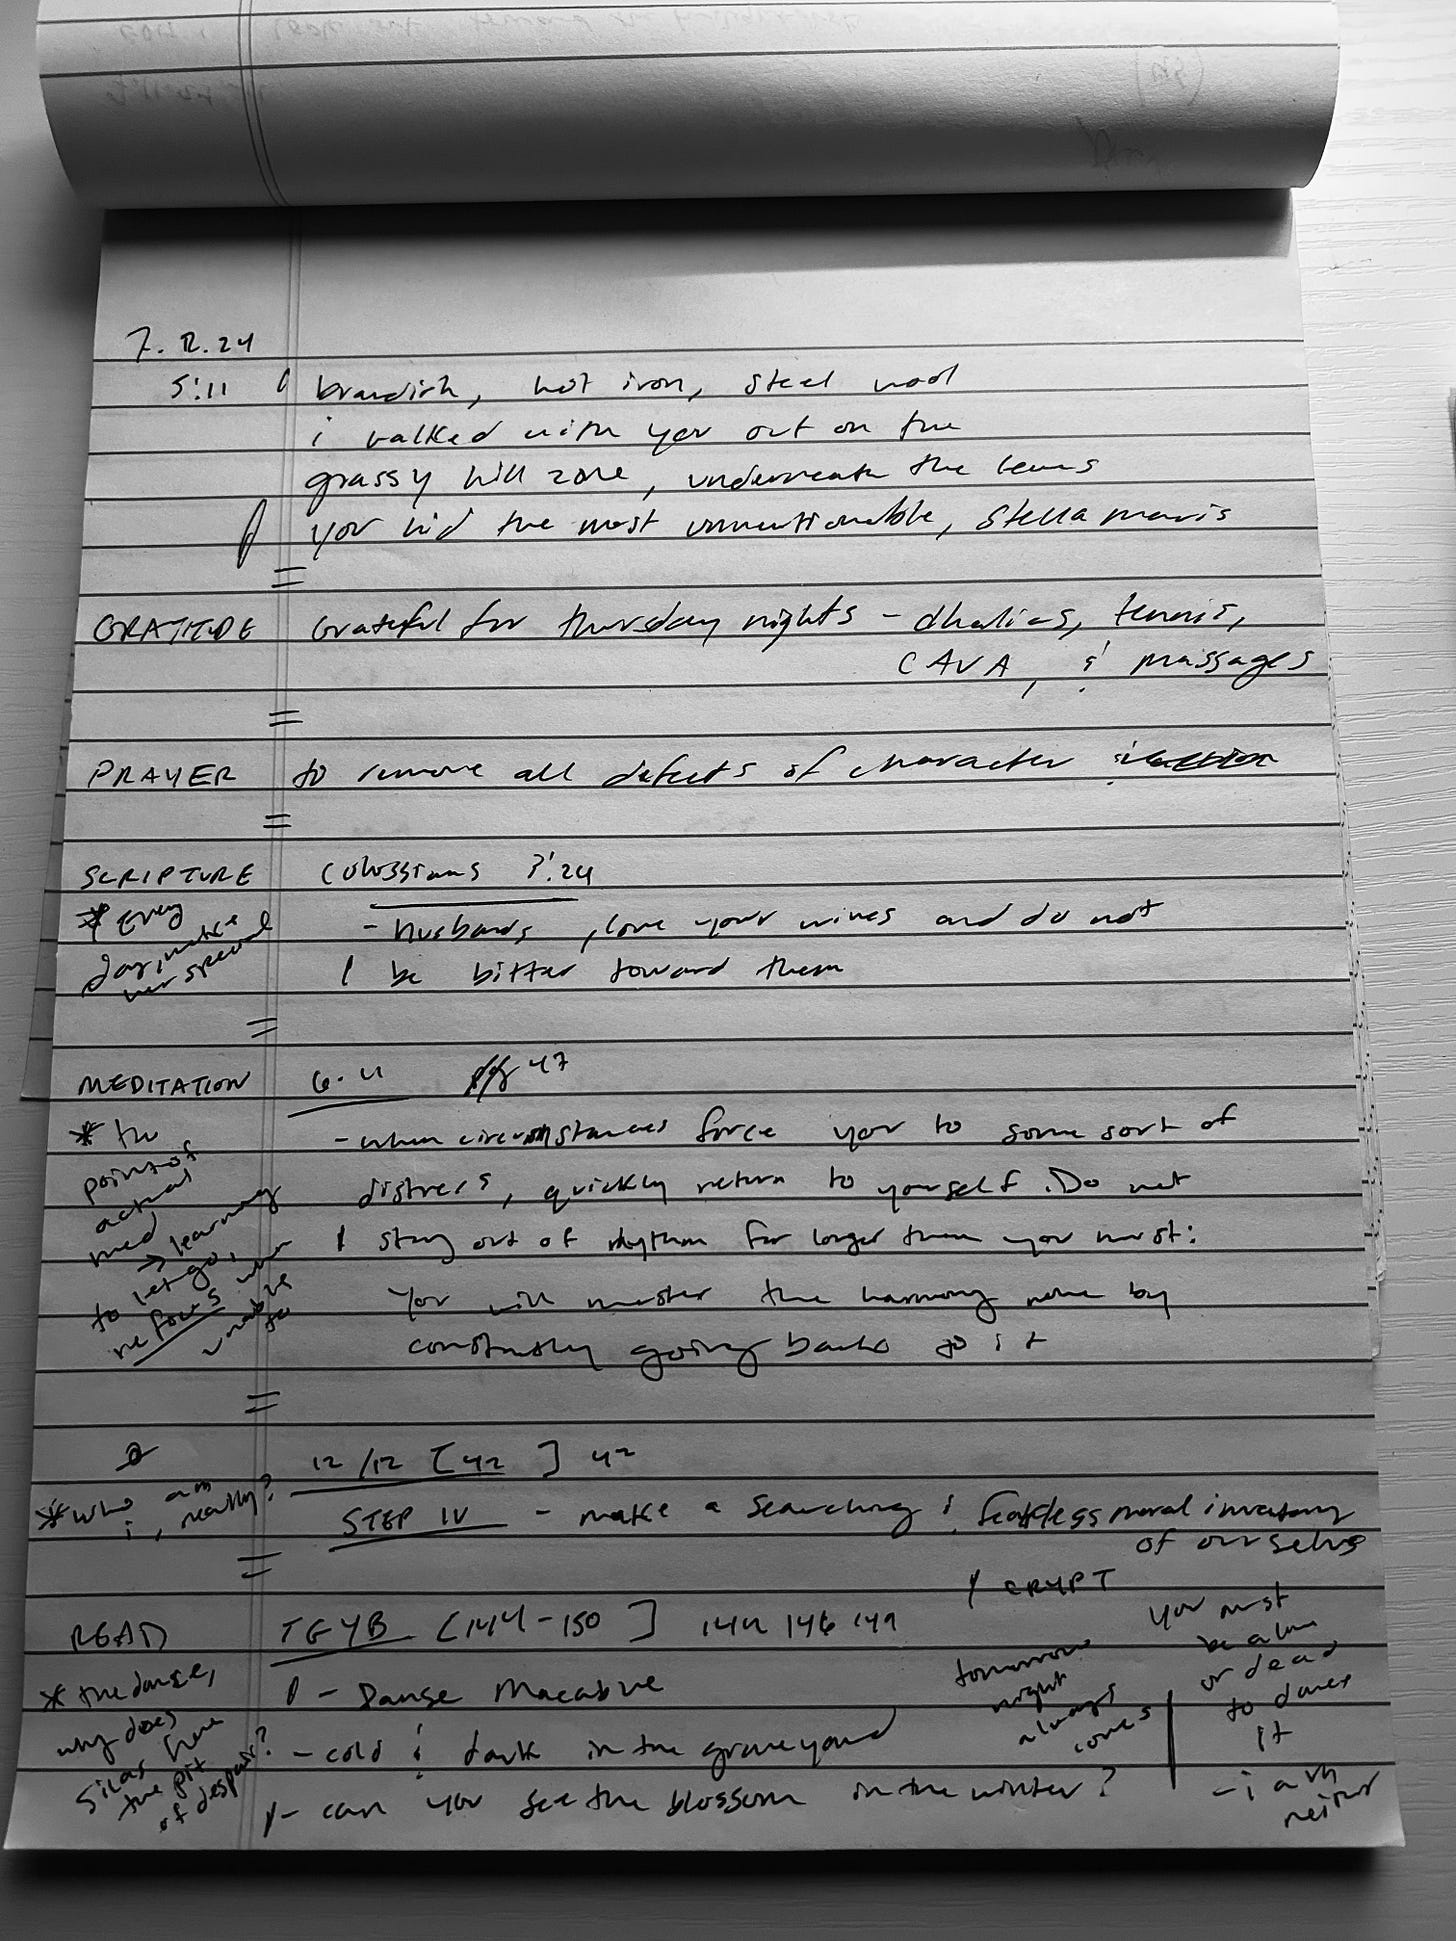 7.12.24
5:11 brandish, hot iron, steel wool
i walked with you out on the
grassy hill zone, underneath the
you hid the most unmentionable, Stella maris
=
GRATITUDE Grateful for thursday nights - dhalias, tennis,
CAVA, & massages
=
PRAYER to remove all defects of character
=
SCRIPTURE Colossians 3:24
* Every
day, make
her special
- Husbands, love your wives and do not
be bitter toward them
=
MEDITATION 6.11 pg 47
* the
point of
actual
med
→ learning
to let go,
refocus when
unable
to
- when circumstances force you to some sort of
distress, quickly return to yourself. Do not
stay out of rhythm for longer than you must:
You will master the harmony more by
constantly going back to it
=
12/12 [42] 42
* who am
i, really?
STEP IV - make a searching & fearless moral inventory
of ourselves
=
READ TGYB [144-150] 144 146 149
* the danse,
why does
Silas have
the pit
of despair?
- Danse Macabre
- cold & dark in the graveyard
- can you see the blossom in the winter?
CRYPT
tomorrow
night
always
comes
you must
be alive
or dead
to dance
it
- i am
neither